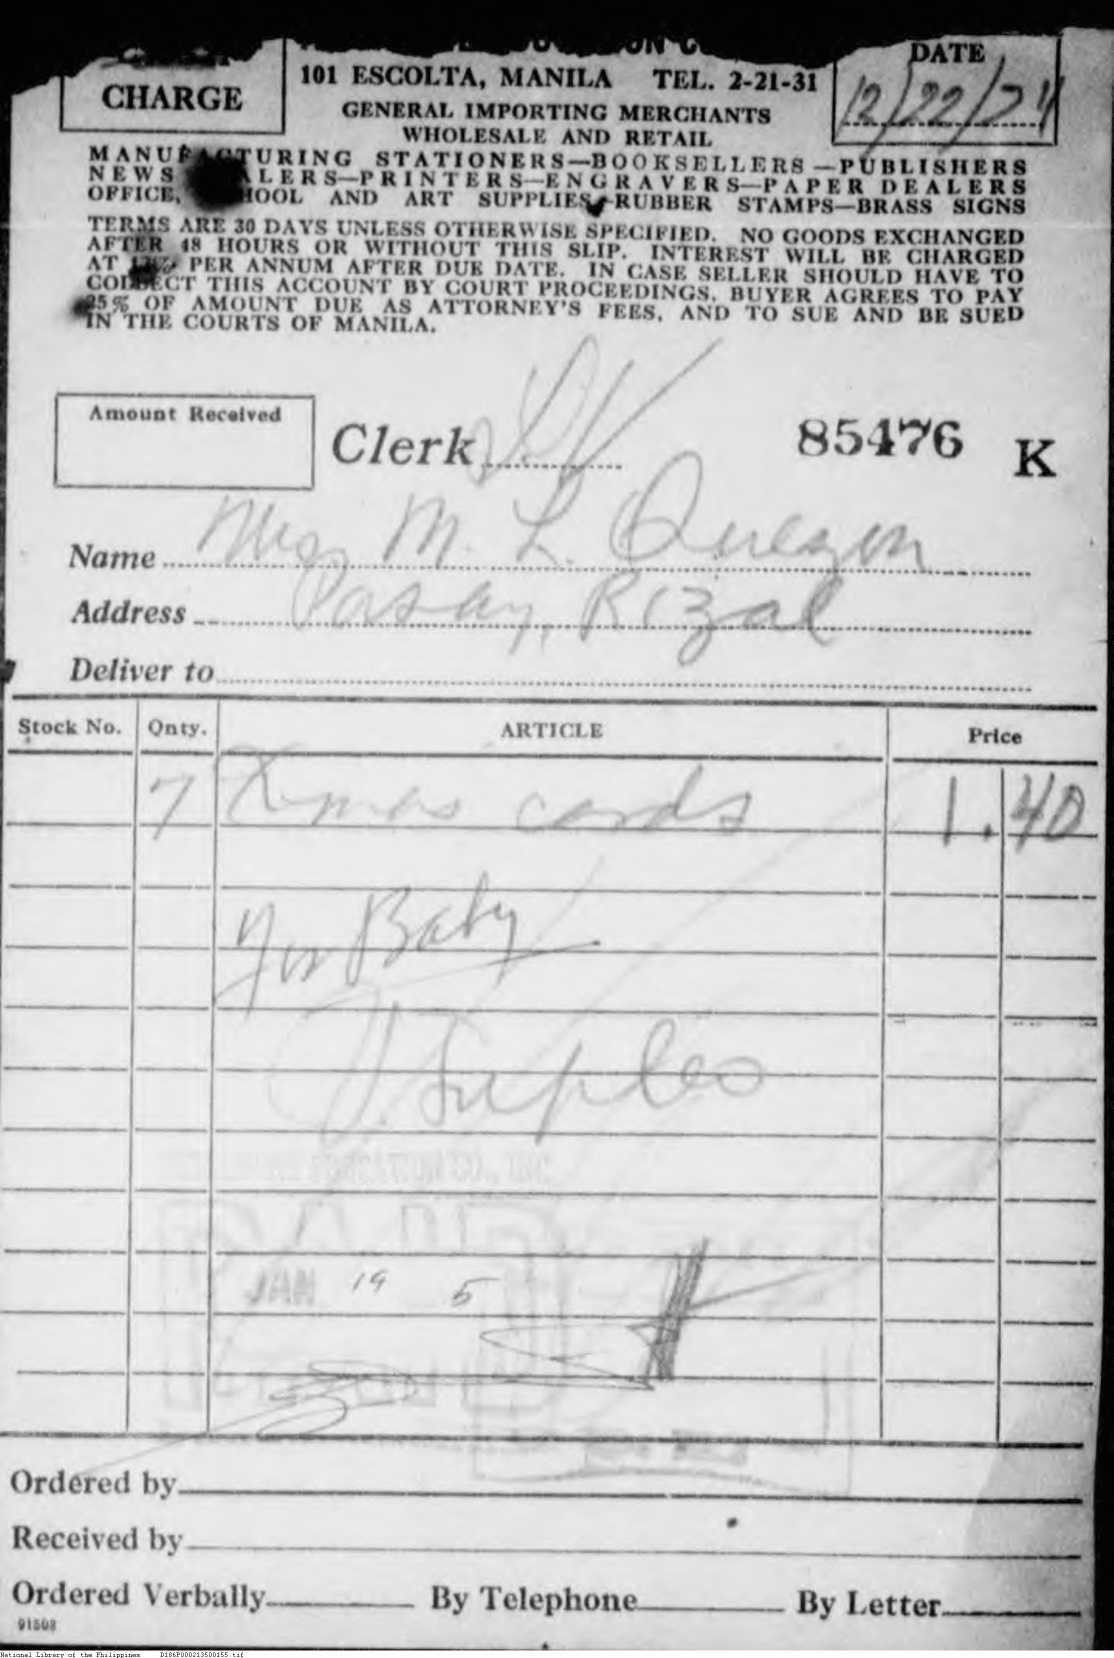 CHARGE
101 ESCOLTA, MANILA TEL. 2-21-31
GENERAL IMPORTING MERCHANTS
WHOLESALE AND RETAIL
DATE
12/22/24
MANUFACTURING STATIONERS—BOOKSELLERS—PUBLISHERS
NEWS LERS—PRINTERS—ENGRAVERS—PAPER DEALERS
OFFICE, HOOL AND ART SUPPLIES—RUBBER STAMPS—BRASS SIGNS
TERMS ARE 30 DAYS UNLESS OTHERWISE SPECIFIED. NO GOODS EXCHANGED
AFTER 48 HOURS OR WITHOUT THIS SLIP. INTEREST WILL BE CHARGED
AT PER ANNUM AFTER DUE DATE. IN CASE SELLER SHOULD HAVE TO
COLLECT THIS ACCOUNT BY COURT PROCEEDINGS, BUYER AGREES TO PAY
25% OF AMOUNT DUE AS ATTORNEY'S FEES, AND TO SUE AND BE SUED
IN THE COURTS OF MANILA.
Amount Received
Clerk
85476 K
Name M. L. Quezon
Address Pasay, Rizal
Deliver to
Stock No. Qnty. ARTICLE Price
7 Xmas cards 1.40
for Baby
EDUCATION CO., INC.
PAID
JAN 19 5
Ordered by
Received by
Ordered Verbally By Telephone By Letter
91508
National Library of the Philippines D186P000213500155.tif